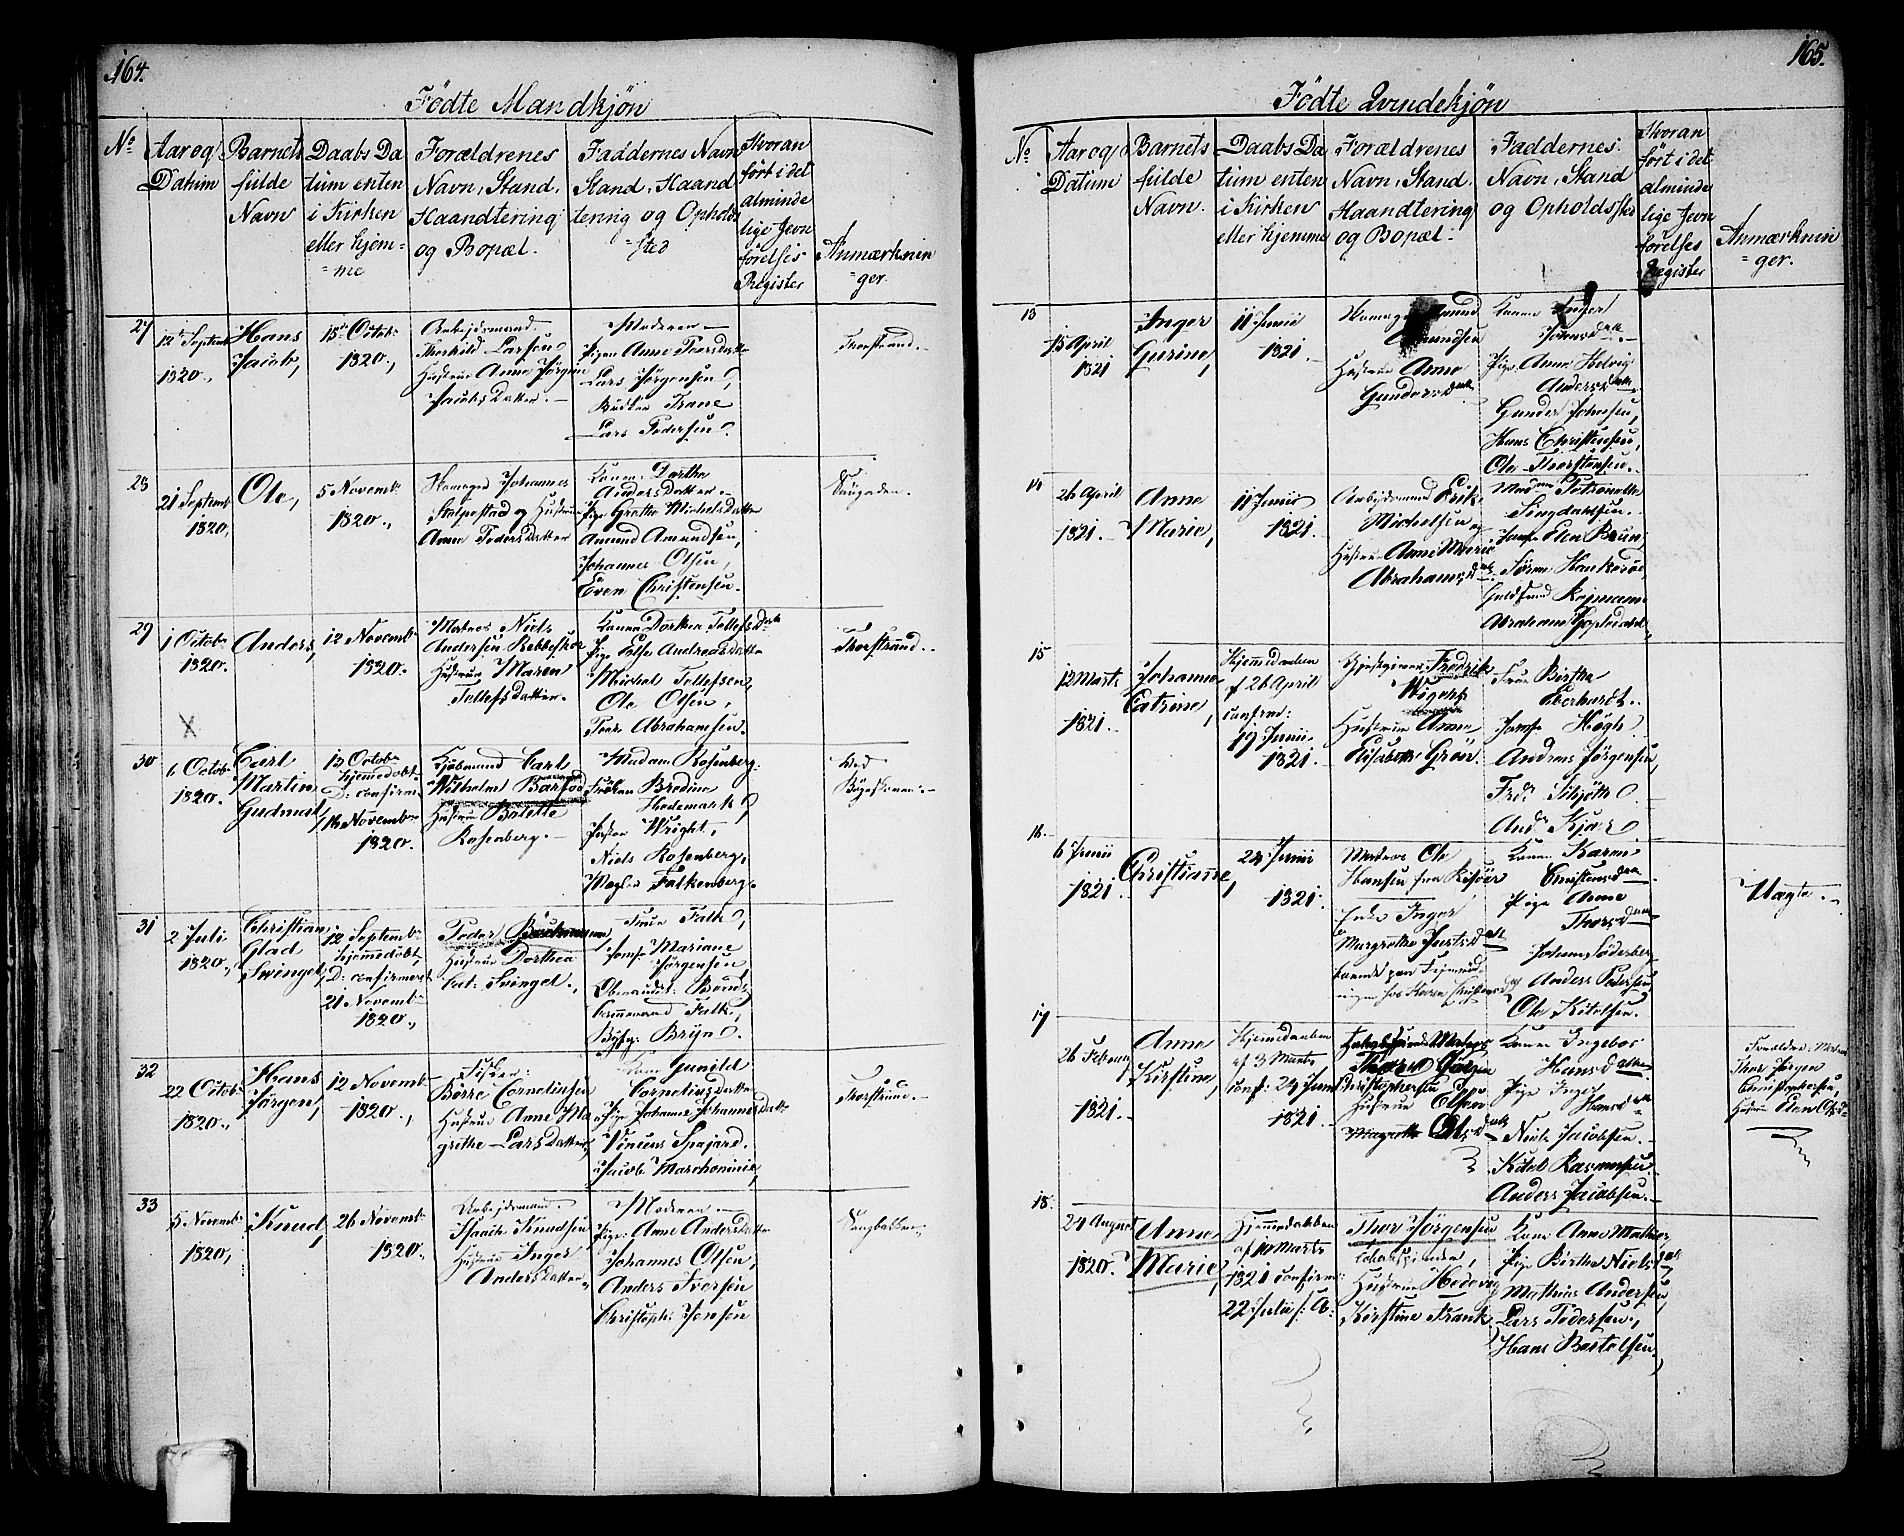 164.
Fødte Mandkjøn
No
Aar og
Datum
Barnets
fulde
Navn
Daabs Da
tum enten
i Kirken
eller hjem=
=me
Forældrenes
Navn, Stand,
Haandtering
og Bopæl.
Faddernes Navn
Stand, Haand
tering og Opholds
=sted
Hvoran
ført i det
alminde
lige Jevn
førelses
Register
Anmærknin
=ger.
27
12te Septemb
1820.,
Hans
Jacob,
15de Octob:
1820.,
Arbejdsmand
Thorkild Larsen
Hustrue Anne Jørgine
Jacobs Datter.
Moderen
Pigen Anne Toresdatter
Lars Jørgensen,
Trane
Lars Pedersen.
Thorstrand.
28
21 Septemb
1820,
Ole,
5 Novemb:
1820.,
Skomager Johannes
Stolpestad og Hustrue
Anne Peders Datter
Konen Dorthe
Anders Datter
Pige Grethe Michelsdatter
Amund Amundsen,
Johannes Olsen,
Even Christensen.
29
1 Octobr
1820.
Anders,
12 Novemb:
1820.
Matros Niels
Andersen
Hustrue Maren
Tellefs Datter.
Konen Dorthea Tellefs Datr
Pige Else Andreasdatter
Michel Tellefsen,
Ole Olsen,
Peder Abrahamsen.
Thorstrand.
X
30
6 Octobr
1820.
Carl
Martin
Gudmut,
13 Octob:
hjemedøbt
D: confirm:
14 November
1820.
Kjøbmand Carl
Wilhelm Barfod
Hustrue Bolette
Rosenberg.
Madam Rosenberg:
Frøken Bredine
Hedemark,
Wright,
Niels Rosenberg,
Falkenberg.
Ved
31
2 Juli
1820.,
Christian
Glad
Svingel,
12 Septemb:
hjemmedøbt
D: confirmeret
21 Novemb:
1820.,
Peder
Hustrue Dorthea
Cat: Svingel.,
Frue Falk,
Jomf: Mariane
Jørgensen
Falk,
Brijn.
32
22 Octob:
1820.,
Hans
Jørgen,
12 Novemb
1820.,
Fisker:
Børre Corneliusen
Hustrue Anne Ma
grethe LarsDatter,
Kone Gunild
Cornelius Datter
Pige Johanne JohannesDatr
Vincens
Jacob
Thorstrand.
33
5 Novemb:
1820,
Knud,
26 Novemb:
1820.,
Arbejdsmand
Isaach Knudsen
Hustrue Inger
Anders Datter,
Moderen
Pige: Anne AndersDatter
Johannes Olsen,
Anders Iversen
Christoph: Jensen
165.
Fødte Qvindekjøn
No
Aar og
Datum
Barnets
fulde
Navn.
Daabs Da
tum enten
i Kirken
eller hjemme
Forældrenes
Navn, Stand,
Haandtering
og Bopæl.
Faddernes
Navn, Stand
og Opholdssted
Hvoran
ført i det
alminde
lige Jevn
førelses
Register
Anmærknin
=ger.
13
15 April
1821
Inger
Gurine,
11 Junii
1821.
Hustrue Anne
Gundersd
Konen Inger
Pige Anne Helvig
Andersd
Gunder Johnsen,
Hans Christensen,
Ole Thorstensen.
14
24 April
1821.
Anne
Marie,
11 Junii
1821.
Arbejdsmand Erik
Michelsen og
Hustrue Anne Marie
Abrahamsd
Madam Petronelle
Singdahlsen.
Jomfr Elen Bruun
Søren
Abraham
15
12 Marts
1821.
Johanne
Catrine,
Hjemmedøben
af 26 April
confirm:
19 Junii
1821.
Fredrik
Wigers
Hustrue Anne
Elisabeth Grøn.
Frue Birthe
Eberhardt.
Jomfr Høgh.
Andreas Jørgensen,
Fredr. Schjøth.
Andr Kjær
16.
6 Junii
1821.
Christianne,
24 Junii
1821.
Matros Ole
Hansen fra Risøer
Enke Inger
Margrethe
Konen Karen
Christensd
Pige Anne
Thorsd
Johan Söderberg
Anders Pedersen,
Ole Kitelsen.
Uægte.
17
26 Februarj
1821.
Anne
Kirstine,
Hjemmedøben
af 3 Marts
conf: 24 Junii
1821.
Christophersen
Hustrue Elen
Olsd
Konen Ingebor
Hansdatter
Pige Inger
Hansd
Niels Jacobsen.
Kitel Rasmusen
Anders Jacobsen.
Forældre: Matros
Thor Jørgen
Christophersen,
Hustrue Elen Olsd
18.
24 August
1820.
Anne
Marie,
Hjemmedøbben
af 10 Marts
1821 confirm:
22 Julii s: A:
Thor Jørgensen
Hustrue Hedevig
Kirstine Frank
Kone Anne Mathea
Pige Birthe Nielsd
Mathias Andersen
Lars Pedersen.,
Hans Bertelsen.,